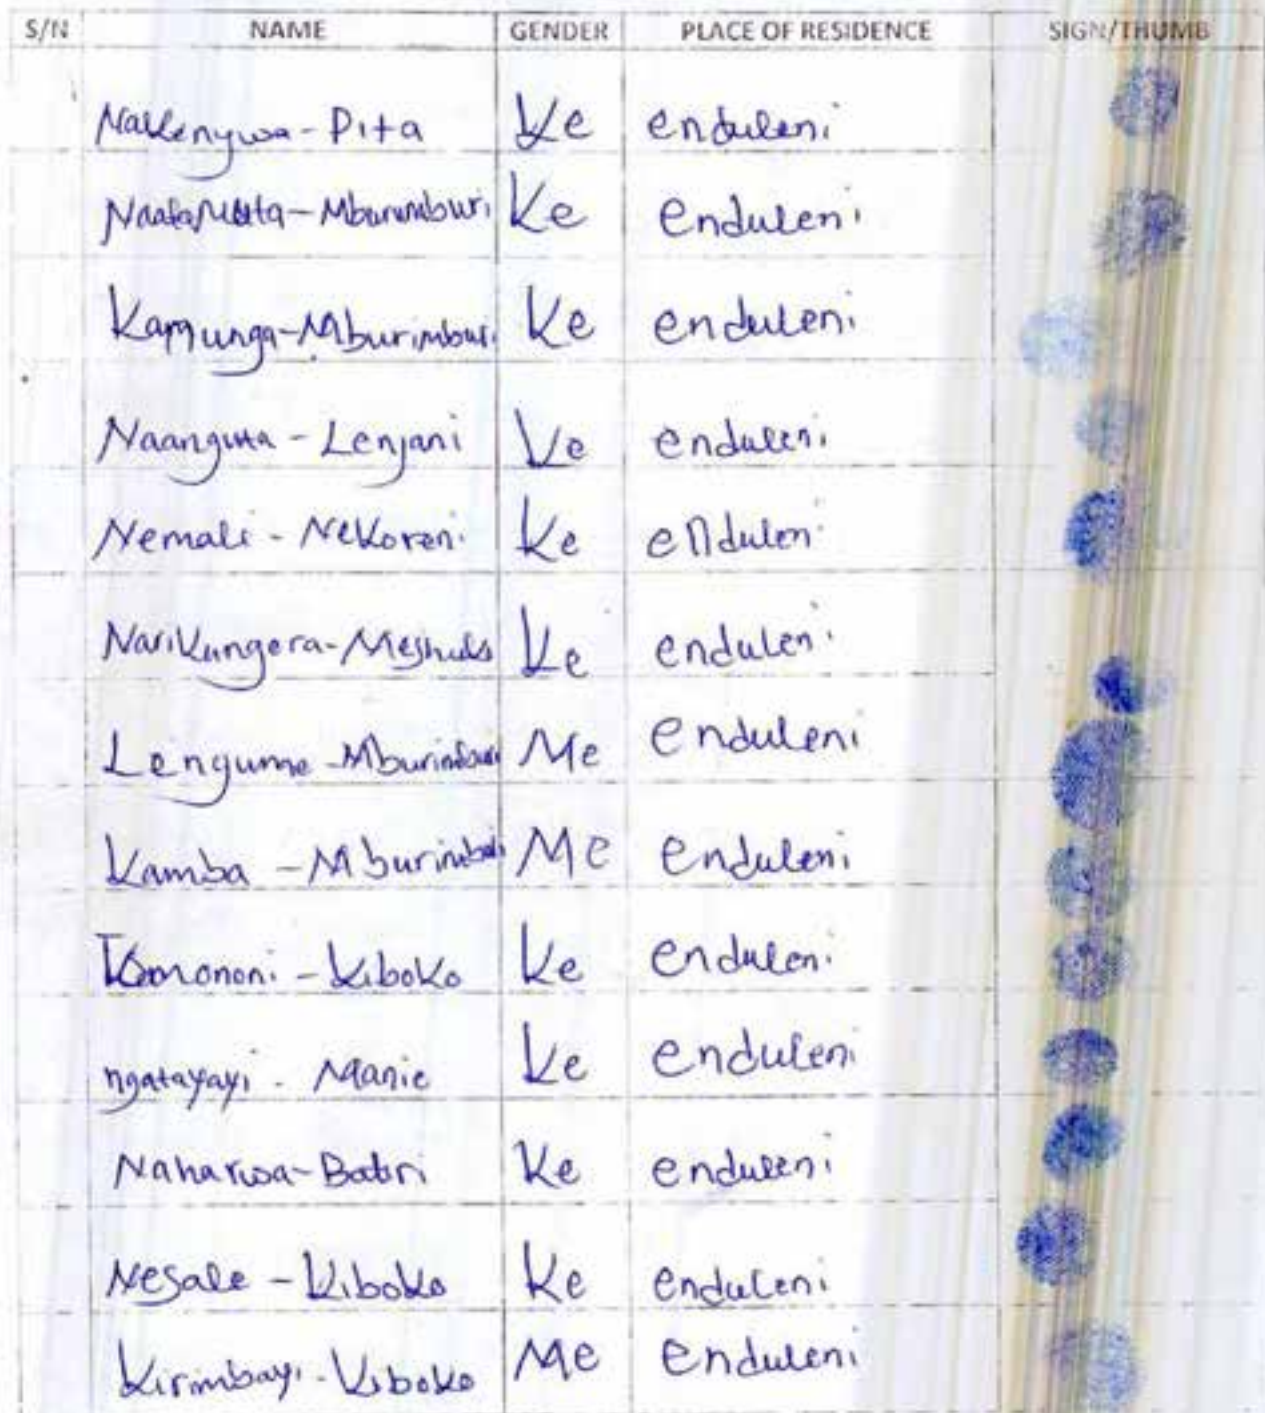 S/N NAME GENDER PLACE OF RESIDENCE SIGN/THUMB
Nakenywa - Pita Ke enduleni
Mburumburi Ke enduleni
Kamunga - Mburimburi Ke enduleni
Naanguta - Lenjani Ke enduleni
Nemali - Nekoreni Ke enduleni
Narikungera - Meshuko Ke enduleni
Lengume - Mburimburi Me enduleni
Kamba - Mburimburi Me enduleni
Kiboko Ke enduleni
ngatayayi - Manie Ke enduleni
Naharwa - Ke enduleni
Nesale - Kiboko Ke enduleni
Kirimbayi - Kiboko Me enduleni